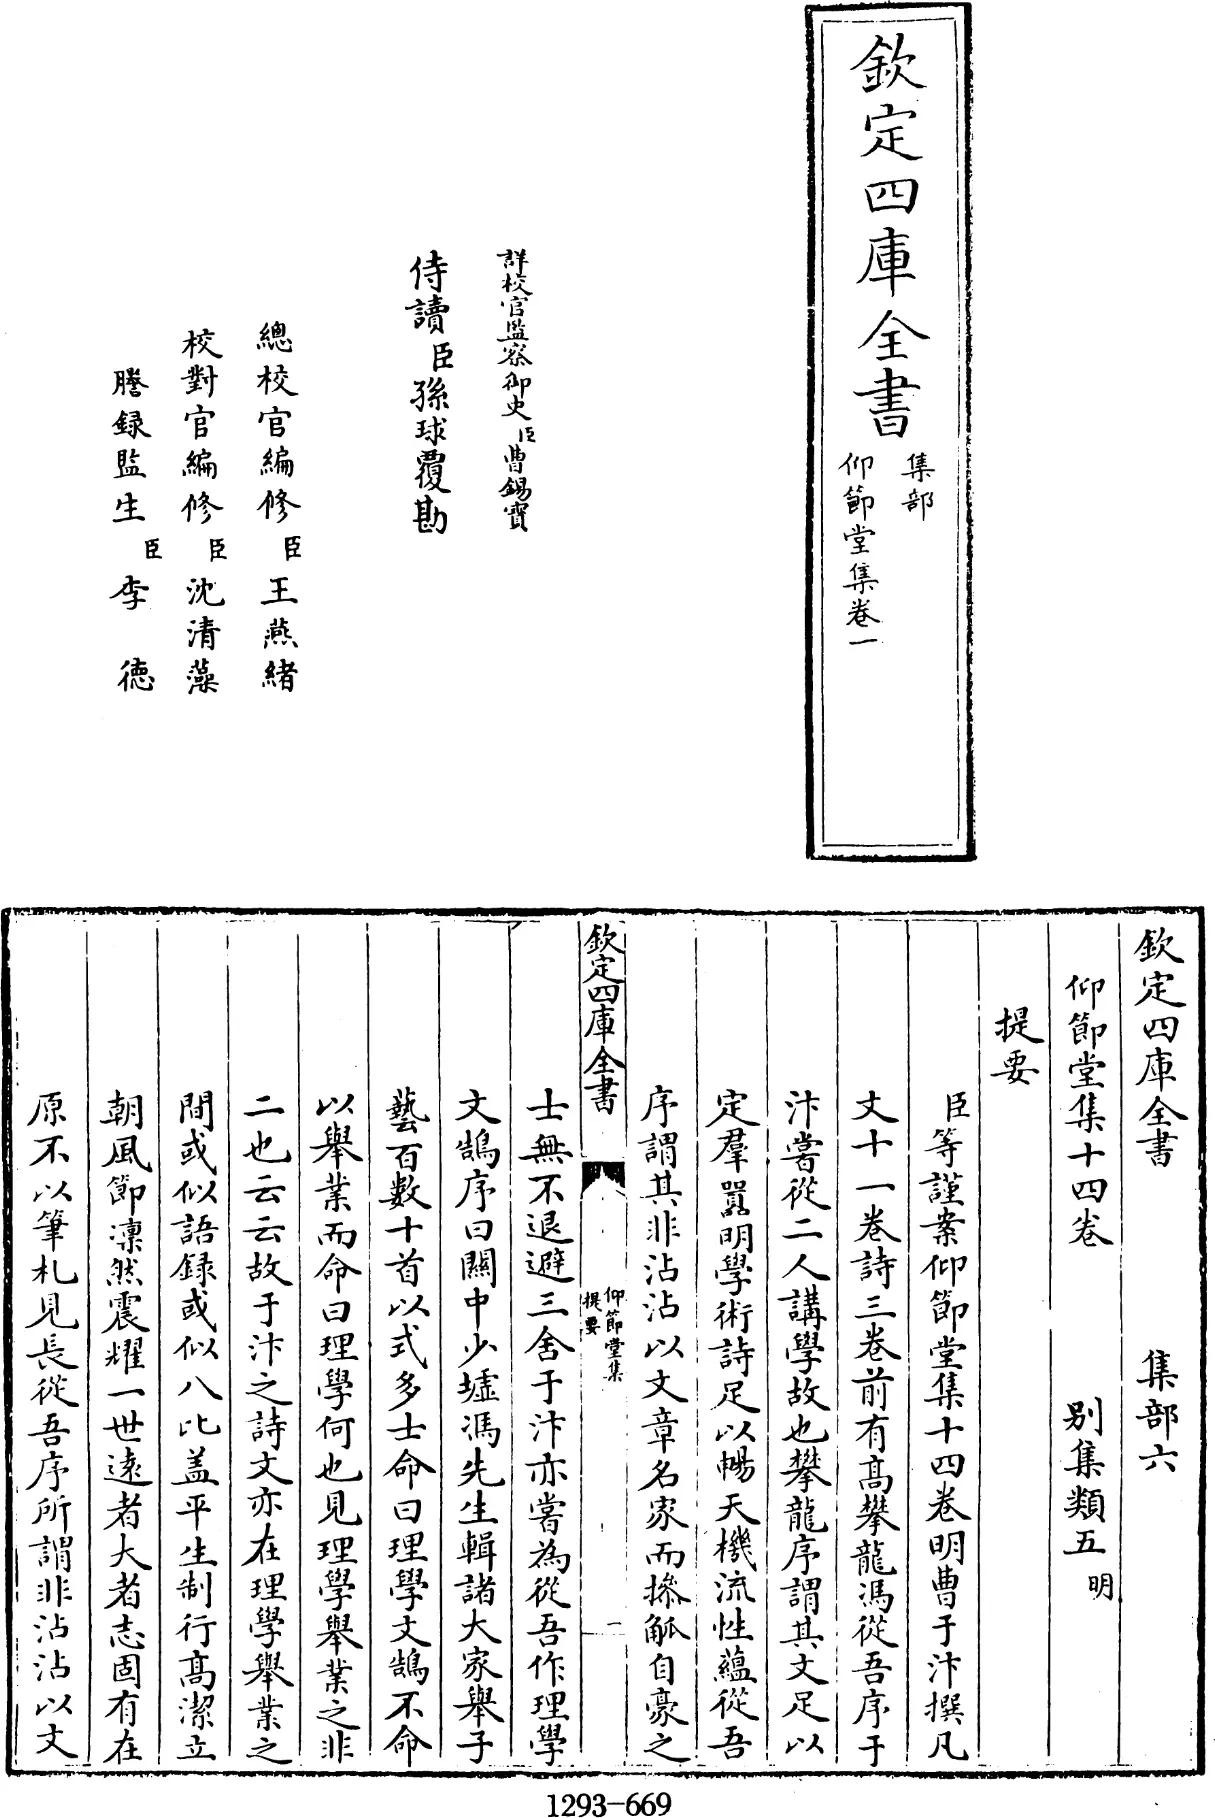 欽定四庫全書
集部
仰節堂集卷一
詳校官監察御史臣曹錫寶
侍讀臣孫球覆勘
總校官編修臣王燕緒
校對官編修臣沈清藻
謄錄監生臣李德
欽定四庫全書 集部六
仰節堂集十四卷 別集類五明
提要
臣等謹案仰節堂集十四卷明曹于汴撰凡
文十一卷詩三卷前有髙攀龍馮從吾序于
汴嘗從二人講學故也攀龍序謂其文足以
定羣囂明學術詩足以暢天機流性藴從吾
序謂其非沾沾以文章名家而摻觚自豪之
欽定四庫全書
仰節堂集
提要
一
士無不退避三舍于汴亦嘗為從吾作理學
文鵠序曰關中少墟馮先生輯諸大家舉子
藝百數十首以式多士命曰理學文鵠不命
以舉業而命曰理學何也見理學舉業之非
二也云云故于汴之詩文亦在理學舉業之
間或似語録或似八比盖平生制行髙潔立
朝風節凜然震耀一世逺者大者志固有在
原不以筆札見長從吾序所謂非沾沾以文
1293-669